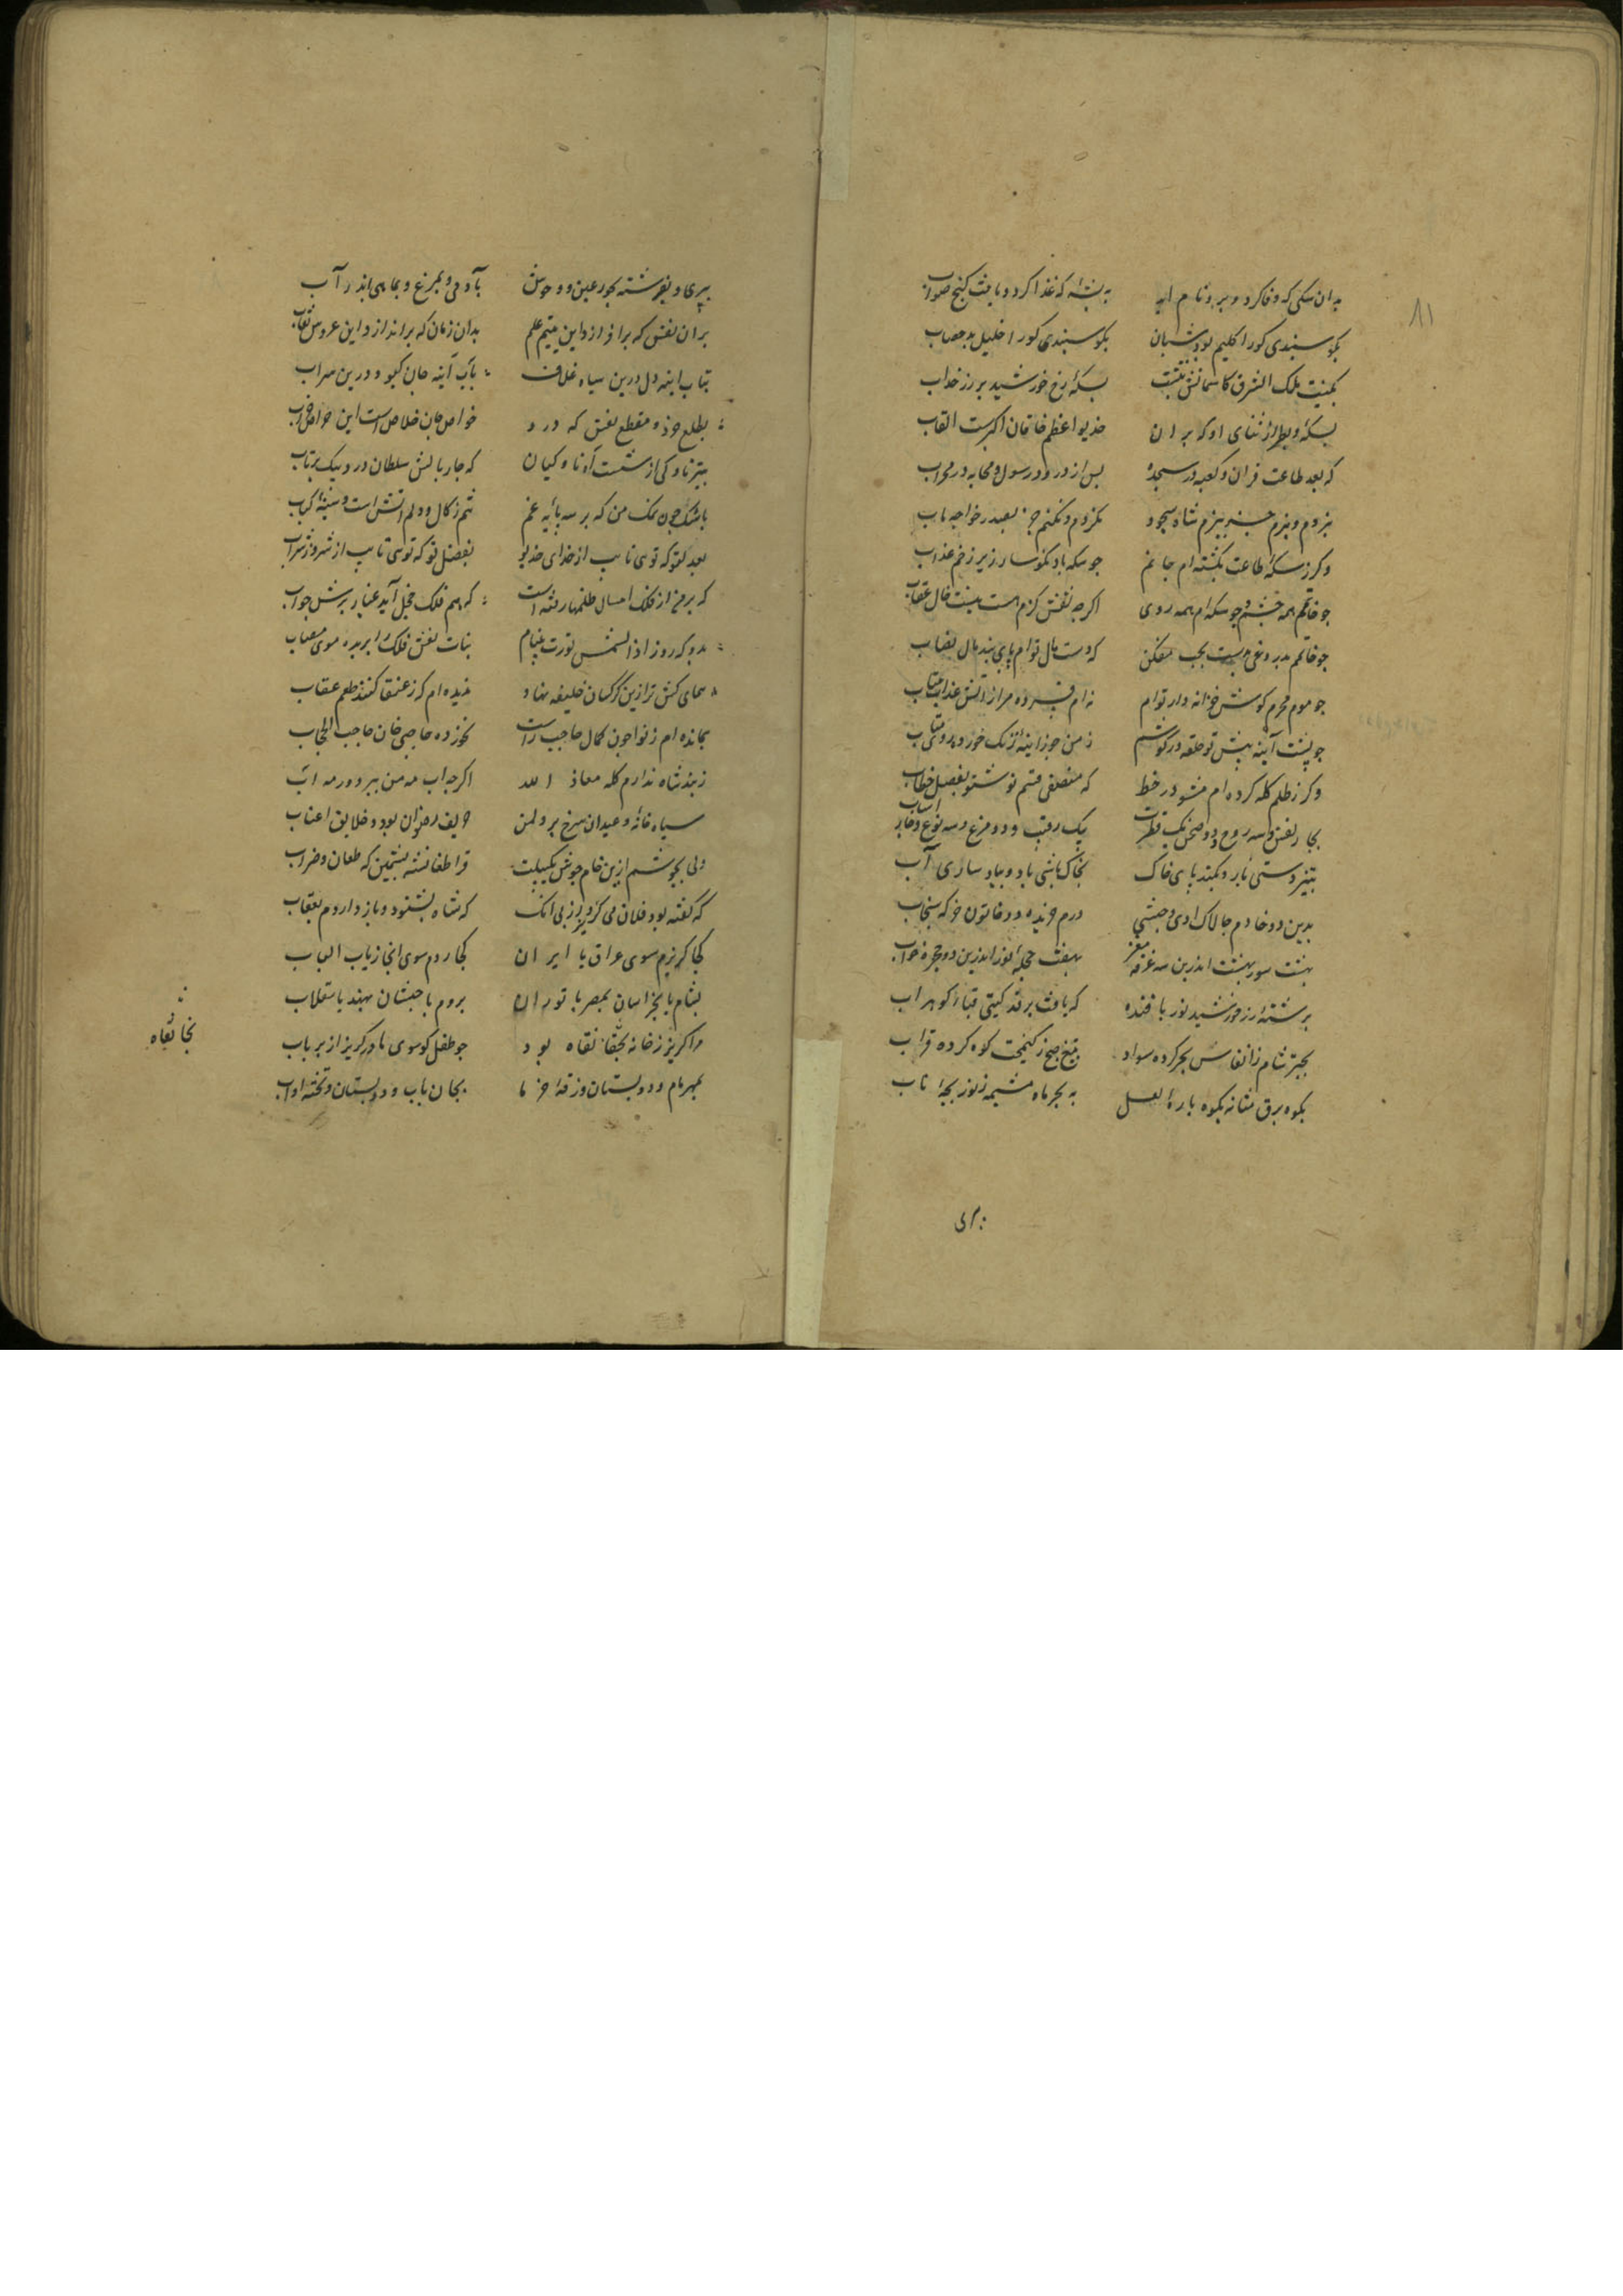 ۸۱
بدان سکی که وفا کرد و ببرد نام ابد به پشه که غذا کرد و یافت کنج صواب
بکوسبندی کورا کلیم بود شبان بکوسبندی کورا خلیل بد قصاب
بکنیت ملک الشرق کاسمانش نبشت بسکه رخ خورشید بر زر خداب
بسکه و بطراز ثنای او که بر ان خدیو اعظم خاقان اکبرست القاب
که بعد طاعت قران و کعبه در سجده بس از درود رسول و صحابه در محراب
بزم شاه سجود نکردم و نکنم جز بصدر خواجه ماب
وکر ز سکه طاعت بکشته ام جانم جو سکه باد نکوسار زیر زخم عذاب
جو خاتم همه چشم و جو سکه ام همه روی اکرجه نقش کژم هست
جو خاتم بدروغی بدست جب مفکن که دست مال توام پای بند مال نصاب
جو موم محرم کوش خزانه دار توام نه ام فسرده مرا ز آتش عذاب متاب
جو پشت آینه پیش تو حلقه در کوشم ز من جو زاینه زنک خورده روی متاب
وکر ز ظلم کله کرده ام مشو در خط که منصفی قسم نو شنو بفصل خطاب
بجار نفس و سه روح و دو صحن و یک فطرت بیک رقیب و دو فرع و سه نوع و
اسباب
بتیزدستی نار و بکند پای خاک بخاک پاشی باد و بباد ساری آب
بدین دو خادم جالاک رومی و حبشی درم خریده دو خاتون خرکه سنجاب
بهشت سور بهشت اندرین سه غرفه مغز بهفت حجله نور اندرین دو حجره خواب
برشته زر خورشید نور بافنده که بافت بر قد کیتی قباء کوهر آب
بحبر شام ز انفاس بحر کرده سواد بتیغ صبح ز کیمخت کوه کرده قراب
بکوه برق نشانه بکوه باره لعل به بحر ماه مشیمه ز نور بچه ناب
بپری و بفرشته بحور عین و وحوش بآدمی و بمرغ و بماهی اندر آب
بران نفس که برافرازد این یتیم علم بدان زمان که براندازد این عروس نقاب
بتاب اینه دل درین سیاه غلاف بآب آینه جان کبود درین سراب
بطلع خود و مقطع نفس که درد خواص جان خلاص است این خواص خراب
بتیر ناوکی از شست آه ناوکیان که جار بالش سلطان درد بیک پرتاب
باشک جون نمک من که بر سه پایه غم تنم زکال و دلم آتش است و سینه کباب
بعدل تو که توی نایب از خدای خدیو بفضل تو که توی تایب از شر و ز شراب
که بر من از فلک امسال ظلمها رفته است که هم فلک خجل آید عتاب برش جواب
بدو که روز اذا الشمس کورت بنیام بنات نعش فلک را بریده موی مصاب
همای کش تر ازین کرکسان خلیفه نهاد ندیده ام که ز عنقا کنند طعم عقاب
بمانده ام ز نوا جون کمال حاجب راست نخوزده جاجی خان حاجب الحجاب
ز بند شاه ندارم کله معاذ الله اکرجه اب مه من ببرد در مه اب
سیاه خانه و عیدان سرخ بر دل من حریف رضوان بود و حدایق اعناب
ولی بجوشم ازین خام جوش یکسبلت قراطغانشه بنشین که طعان و ضراب
که کفته بود فلان می کریزد از بی انک که شاه بشنود و باز داردم بعقاب
کجا کریزم سوی عراق یا ایران کجا روم سوی ابخاز یا ب الباب
بشام یا بخراسان بمصر یا توران بروم یا حبشان بهند یا سقلاب
مرا کریز ز خانه بخانقاه بود جو طفل کو سوی مادر کریز از بر باب
بمهر مام و دو پستان و زقه خرما بجان باب و دبستان و تخته اداب
بخانقاه